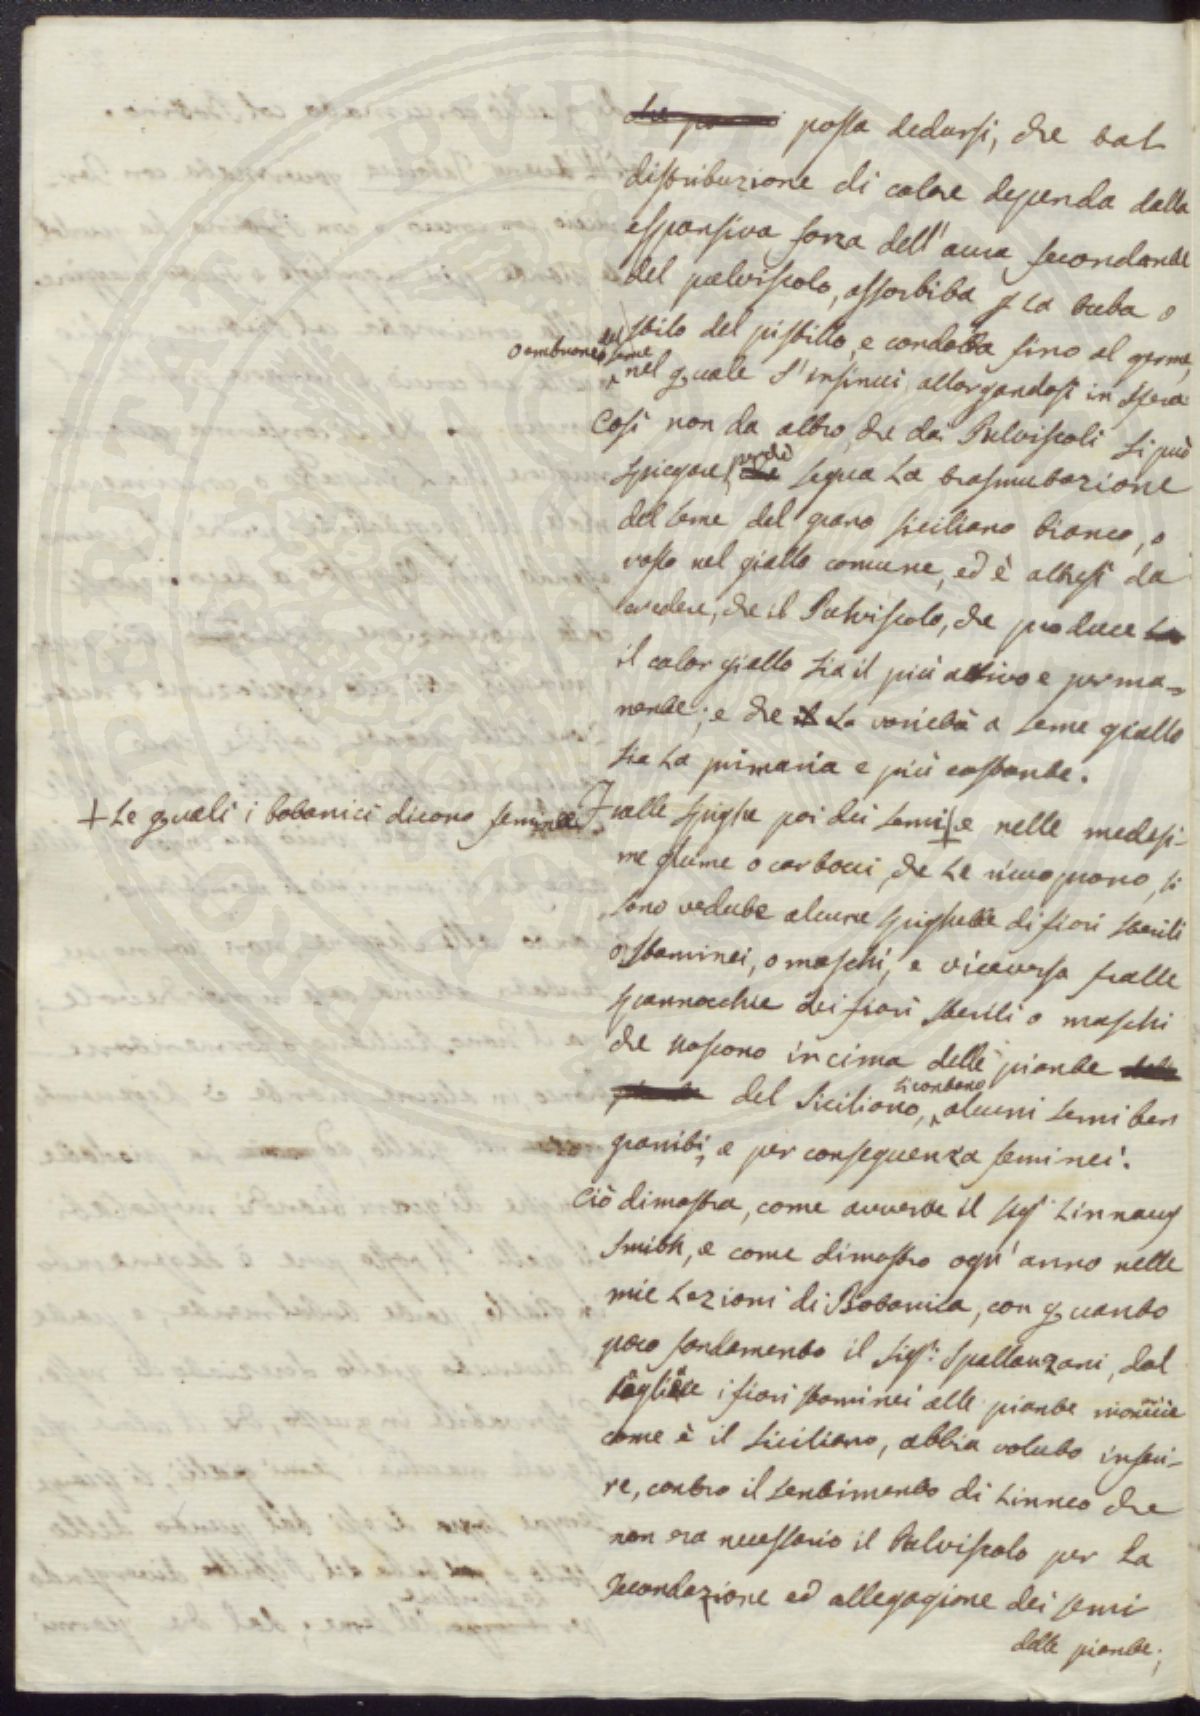 possa dedursi, che tal
distribuzione di calore dependa dalla
espansiva forza dell'aura fecondante
del pulviscolo, assorbita p la tuba o
stilo del pistillo, e condotta fino al germe,
o embrione del seme
nel quale s'insinui allargandosi in sfera
Così non da altro, che dai Pulviscoli si può
spiegare perchè segua la trasmutazione
del seme del grano siciliano bianco, o
rosso nel giallo comune, ed è altresì da
credere, che il Pulviscolo, che produce
il color giallo sia il più attivo e perma=
nente; e che la varietà a seme giallo
sia la primaria e più costante.
+ le quali i botanici dicono feminee
Nelle spighe poi dei semi + e nelle medesi-
me glume o cartocci, che le ricuoprano, si
sono vedute alcune spighette di fiori sterili
o staminei, o maschi, e viceversa fralle
spannocchie dei fiori sterili o maschi
che nascono in cima delle piante
del Siciliano, si contano alcuni semi ben
graniti, e per conseguenza feminei.
Ciò dimostra, come avverte il sigr Linnaeus
Smith, e come dimostro ogn'anno nelle
mie Lezioni di Botanica, con quanto
poco fondamento il Sigr: Spallanzani, dal
togliere i fiori staminei alle piante monoicie
come è il Siciliano, abbia voluto inferi-
re, contro il sentimento di Linneo che
non era necessario il Pulviscolo per la
fecondazione ed allegagione dei semi
delle piante;